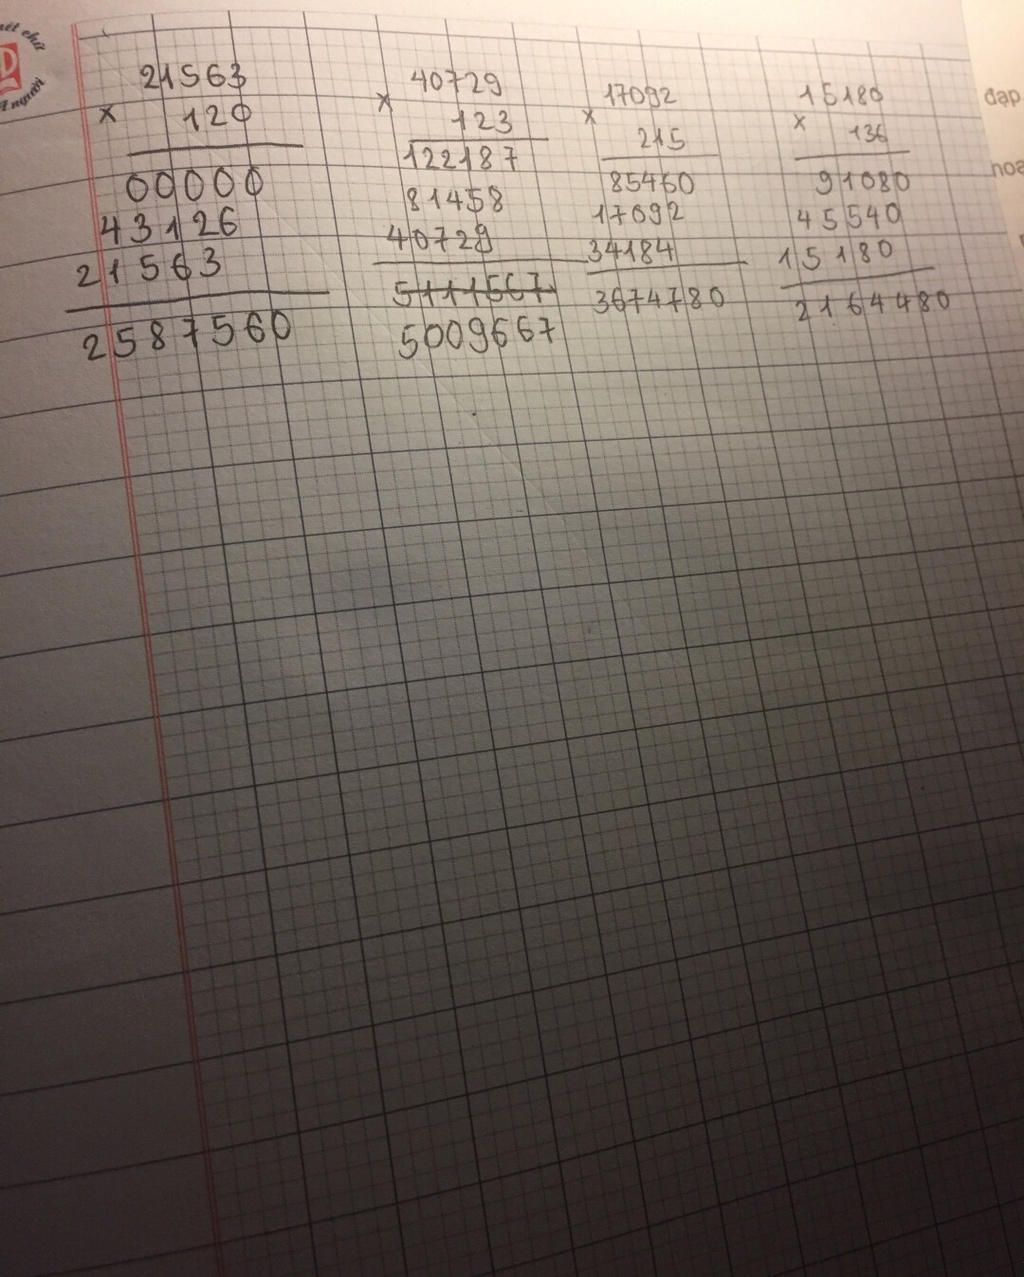 21563
× 120
00000
43126
21563
2587560
40729
× 123
122187
81458
40729
5111567
5009667
17092
× 215
85460
17092
34184
3674780
15180
× 136
91080
45540
15180
2164480
đạp